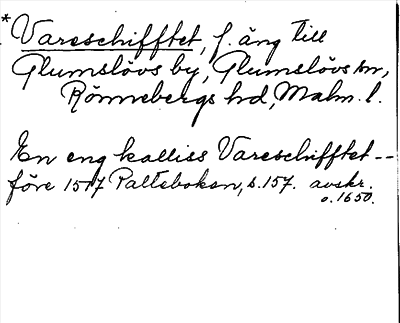 * Vareschifftet, f. äng till
Glumslövs by, Glumslövs sn,
Rönnebergs hd, Malm. l.
En eng kalliss Vareschifftet --
före 1517 Palteboken, s. 157. avskr.
o. 1650.